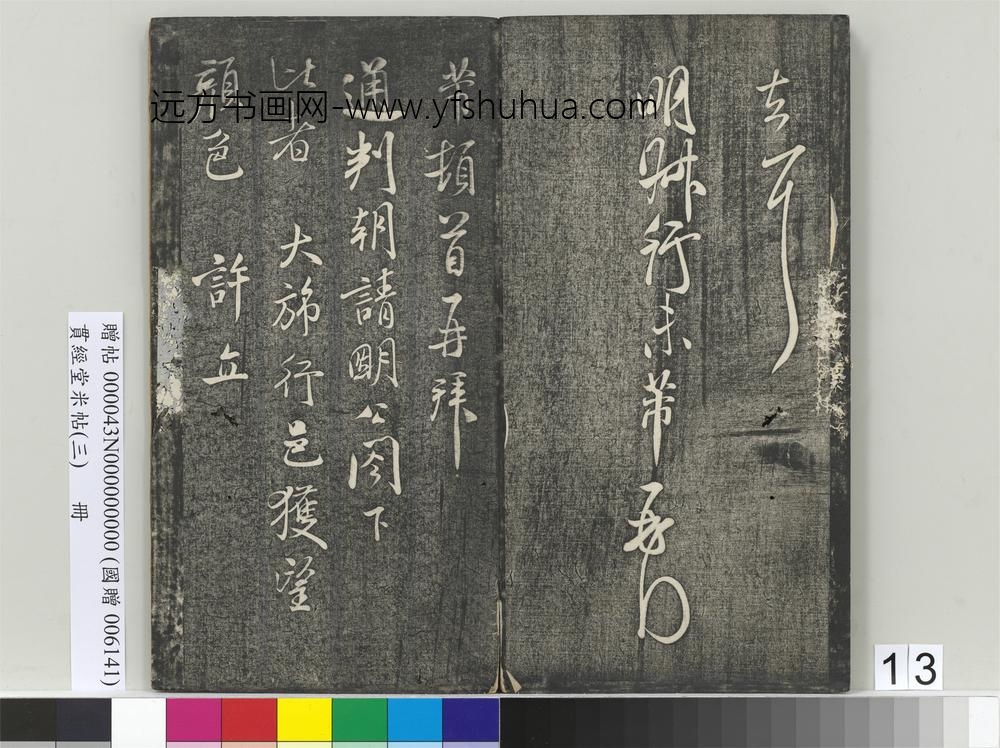 去耳
明
行
芾
再
芾頓首再拜
通判朝請明公閣下
比者 大旆行邑獲望
顏色 許立
远方书画网-www.yfshuhua.com
贈帖 000043N000000000 (國贈 006141)
貫經堂米帖(三) 冊
13